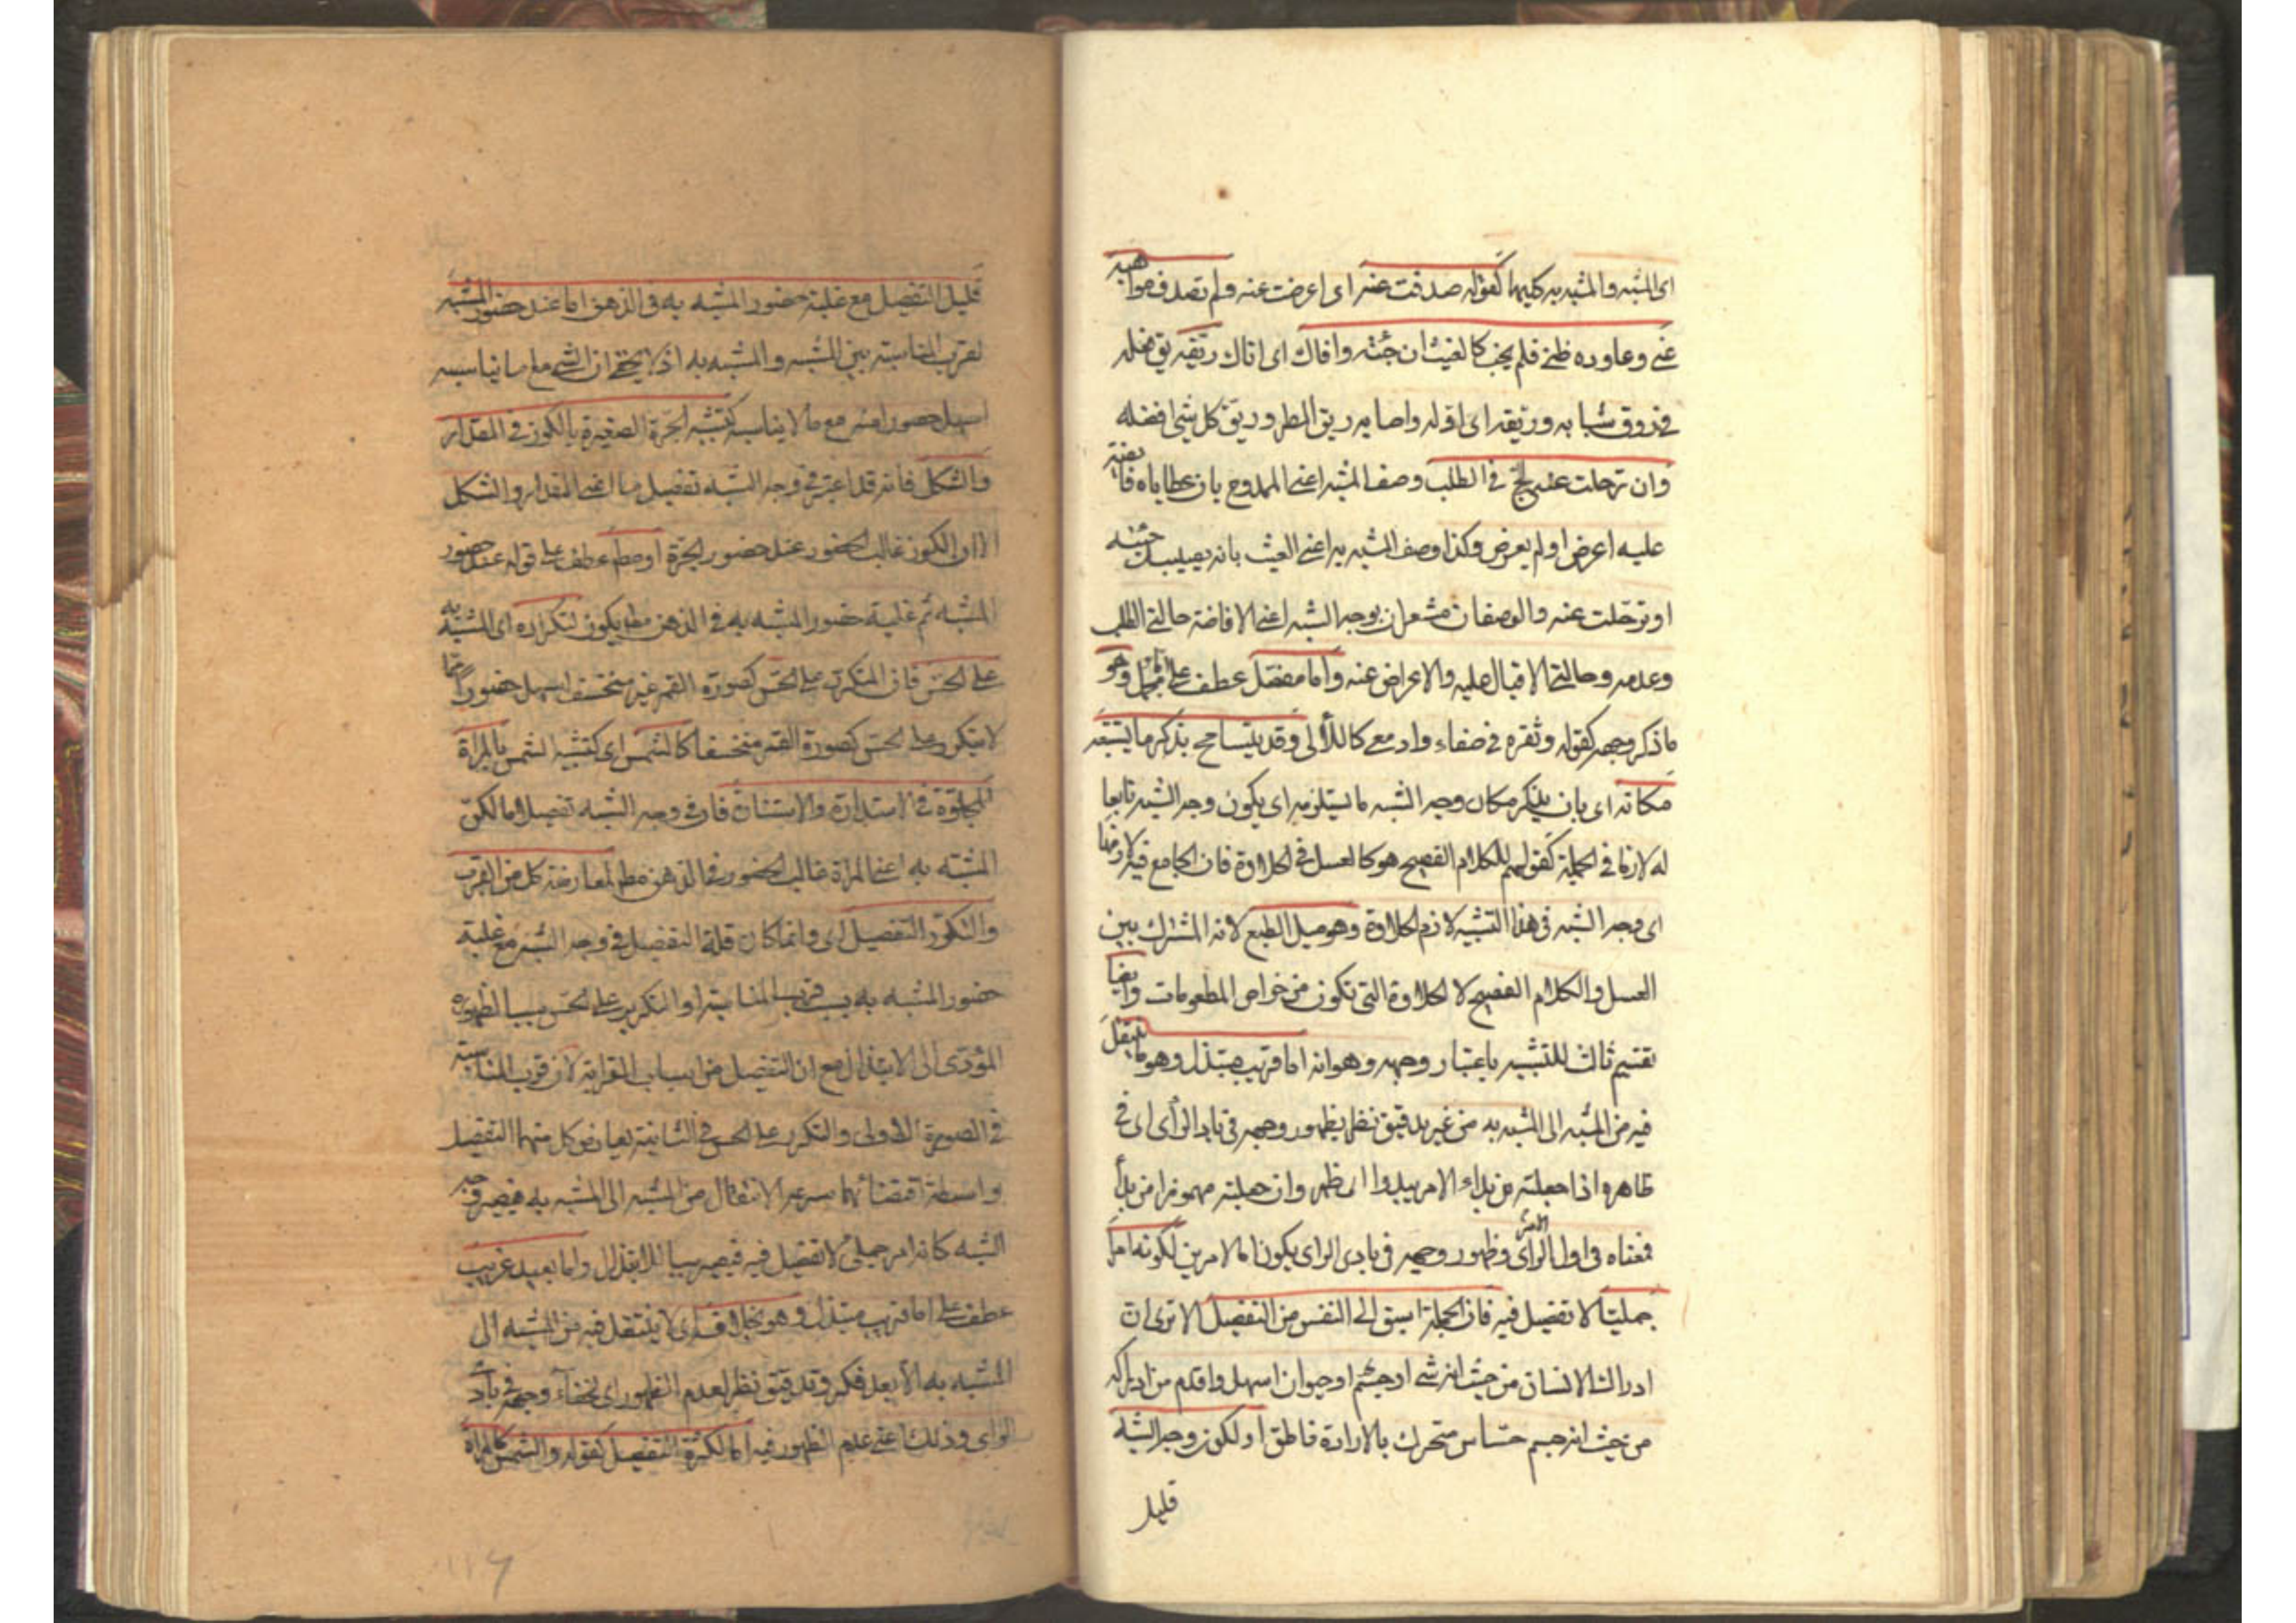 اى المشبه والمشبه به كليهما كقوله صدفت عنه اى اعرضت عنه ولم تصدف مواهبه
عنى وعاوده ظنى فلم يخب كالغيث ان جئته وافاك اى اتاك ريقه يق فعله
فى روق شبابه وريقه اى اوله واصابه ريق المطر وريق كل شئ افضله
وان ترحلت عنه لج فى الطلب وصف المشبه اعنى الممدوح بان عطاياه فايضة
عليه اعرض او لم يعرض وكذا وصف المشبه به اعنى الغيث بانه يصيبك جئته
او ترحلت عنه والوصفان مشعران بوجه الشبه اعنى الافاضة حالتى الطلب
وعدمه وحالتى الاقبال عليه والاعراض عنه واما مفصل عطف على اما مجمل وهو
ما ذكر وجهه كقوله وثغره فى صفاء وادمعى كاللآلى وقد يتسامح بذكر ما يستتبعه
مكانه اى بان يذكر مكان وجه الشبه ما يستلزمه اى يكون وجه الشبه تابعا
له لازما فى الجملة كقولهم للكلام الفصيح هو كالعسل فى الحلاوة فان الجامع فيه لازمها
اى وجه الشبه فى هذا التشبيه لازم الحلاوة وهو ميل الطبع لانه المشترك بين
العسل والكلام الفصيح لا الحلاوة التى تكون من خواص المطعومات وايضا
تقسيم ثالث للتشبيه باعتبار وجهه وهو انه اما قريب مبتذل وهو ما ينتقل
فيه من المشبه الى المشبه به من غير تدقيق نظر لظهور وجهه فى بادى الرأى اى فى
ظاهره اذا جعلته من بدا الامر يبدوا اى ظهر وان جعلته مهموزا من بدأ
فمعناه فى اول الرأى وظهور وجهه فى بادى الراى يكون اما لامرين لكونه امرا
جمليا لا تفصيل فيه فان الجملة اسبق الى النفس من التفصيل الا ترى ان
ادراك الانسان من حيث انه شئ او جسم او حيوان اسهل واقدم من ادراكه
من حيث انه جسم حساس متحرك بالارادة ناطق او لكون وجه الشبه
قليل
قليل التفصيل مع غلبة حضور المشبه به فى الذهن اما عند حضور المشبه
لقرب المناسبة بين المشبه والمشبه به اذ لا يخفى ان الشئ مع ما يناسبه
اسهل حضورا منه مع ما لا يناسبه كتشبيه الجرة الصغيرة بالكوز فى المقدار
والشكل فانه قد اعتبر فى وجه الشبه تفصيل ما اعنى المقدار والشكل
الا ان الكوز غالب الحضور عند حضور الجرة او مطلقا عطف على قوله عند حضور
المشبه ثم غلبة حضور المشبه به فى الذهن مطلقا يكون لتكرره اى المشبه به
على الحس فان المتكرر على الحس كصورة القمر غير منخسف اسهل حضورا مما
لا يتكرر على الحس كصورة القمر منخسفا كالشمس اى كتشبيه الشمس بالمرآة
المجلوة فى الاستدارة والاستنارة فان فى وجه الشبه تفصيلا ما لكن
المشبه به اعنى المرآة غالب الحضور فى الذهن مطلقا لمعارضة كل من القرب
والتكرر التفصيل اى وانما كان قلة التفصيل فى وجه الشبه مع غلبة
حضور المشبه به بسبب قرب المناسبة او التكرر على الحس سببا لظهوره
المؤدى الى الابتذال مع ان التفصيل من اسباب الغرابة لان قرب المناسبة
فى الصورة الاولى والتكرر على الحس فى الثانية يعارض كل منهما التفصيل
واسطة اقتضائهما سرعة الانتقال من المشبه الى المشبه به فيصير وجه
الشبه كانه امر جملى لا تفصيل فيه فيصير سببا للابتذال واما بعيد غريب
عطف على اما قريب مبتذل وهو بخلافه اى لا ينتقل فيه من المشبه الى
المشبه به الا بعد فكر وتدقيق نظر لعدم الظهور اى لخفاء وجهه فى بادى
الراى وذلك اعنى عدم الظهور فيه اما لكثرة التفصيل كقوله والشمس كالمرآة